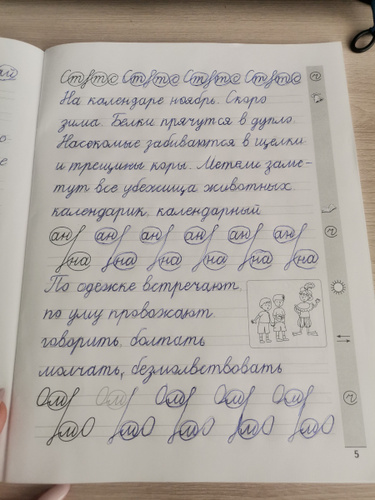 На календаре ноябрь. Скоро
зима. Белки прячутся в дупло.
Насекомые забиваются в щелки
и трещины коры. Метели заме-
тут все убежища животных
календарик, календарный
ан ан ан ан ан ан
на на на на на на
По одежке встречают,
по уму провожают.
говорить, болтать
молчать, безмолвствовать
5